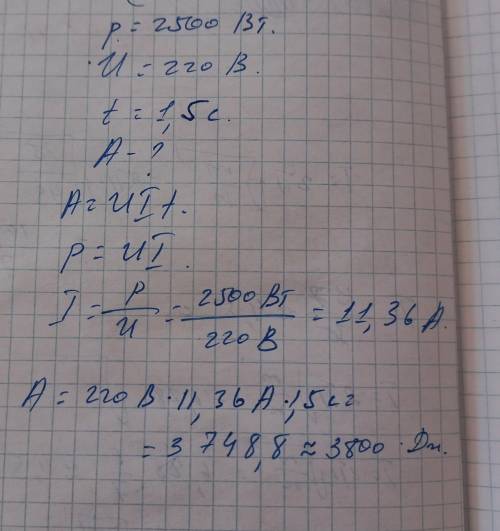 p = 2500 Вт.
U = 220 В.
t = 1,5 с.
A - ?
A = UIt.
p = UI.
I = P/U = 2500 Вт/220 В = 11,36 A.
A = 220 В · 11,36 A · 1,5 с =
= 3 748,8 ≈ 3800 Дж.